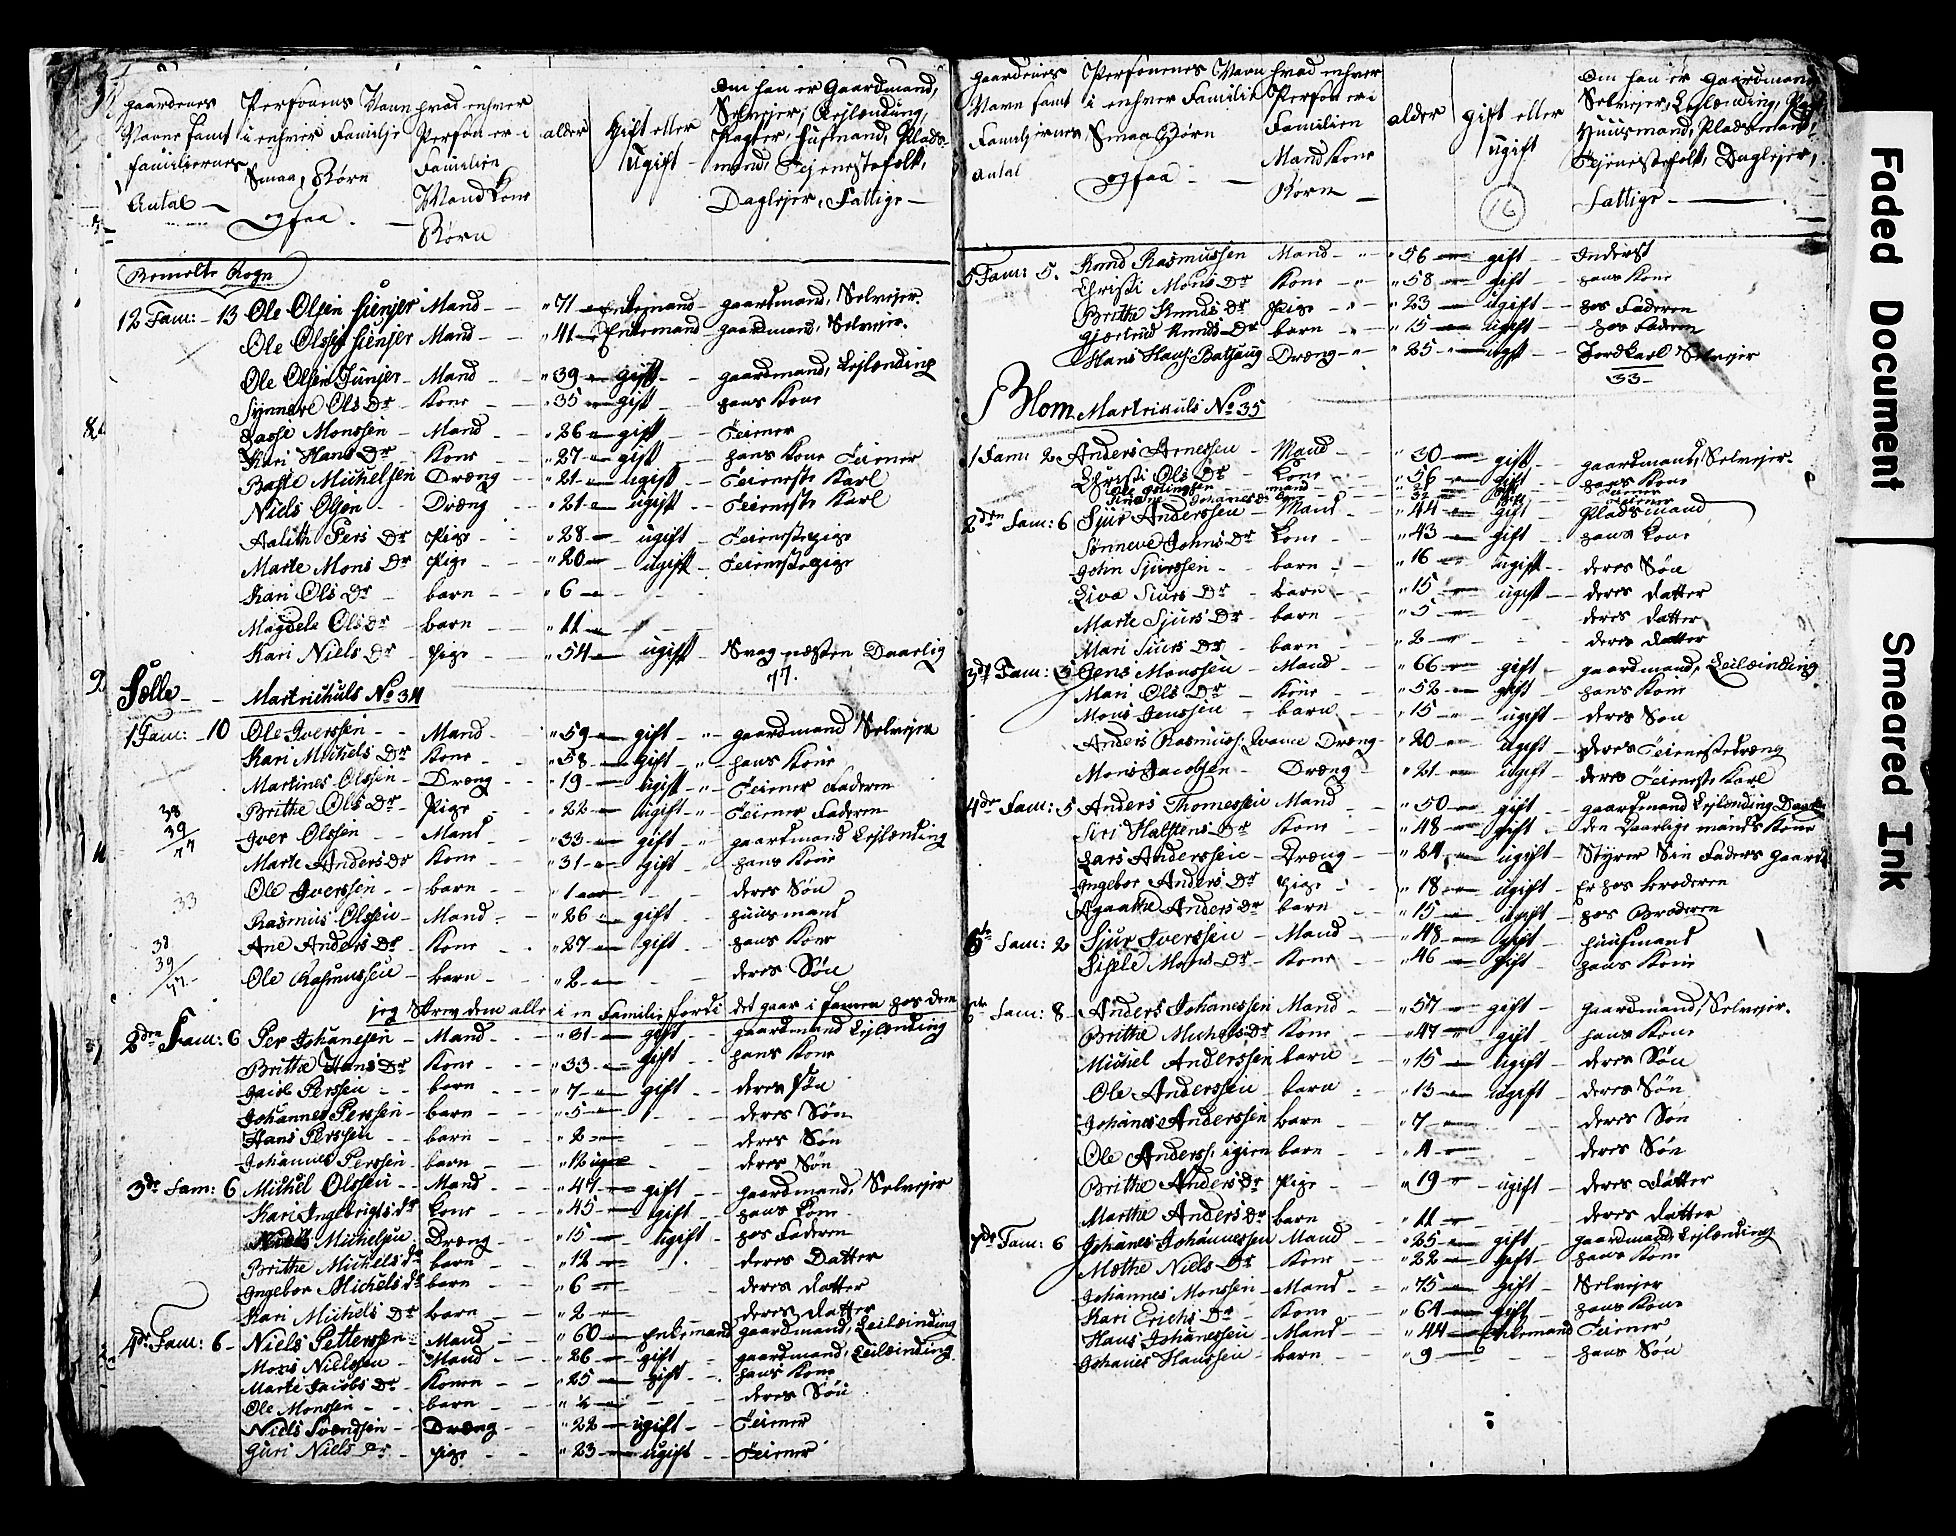 gaardenes Personens Navn hvad enhver alder Gift eller Om han er Gaardmand,
Navne samt i enhver Familje Person er i ugift Selvejer, Lejlænding,
Familiernes Smaa Børn Familien
Antal ogsaa Mand Kone Daglejer, Fattige
Børn
Bemelte Rogn
12 Fam: 13 Ole Olsen Mand 71 Enkemand gaardmand, Selvejer
Ole Olssen Mand 41 Enkemand gaardmand, Selvejer
Ole Olsen Mand 39 gift gaardmand, Lejlænding
Synneve Ols Dr Kone 35 gift hans Kone
Lasse Monssen Mand 26 gift Tiener
Kari Hans Dr Kone 27 gift hans Kone Tiener
Michelsen Dræng 21 ugift Tieneste Karl
Niels Olsen Dræng 21 ugift Tieneste Karl
Pers Dr Pige 28 ugift Tienestepige
Marte Mons Dr Pige 20 ugift Tienestepige
Kari Ols Dr barn 6
Magdela Ols Dr barn 11
Kari Niels Dr Pige 54 ugift Svag næsten Daarlig
77.
Martrichuls No 34
1 Fam: 10 Ole Iverssen Mand 59 gift gaardmand Selvejer
Kari Michels Dr Kone 58 gift hans Kone
Martines Olssen Dræng 19 ugift Tiener Faderen
Brithe Ols Dr Pige 22 ugift Tiener Faderen
Iver Olssen Mand 33 gift gaardmand Lejlænding
Marte Anders Dr Kone 31 gift hans Kone
Ole Iverssen barn 1 deres Søn
Rasmus Olssen Mand 26 gift huusmand
Ane Anders Dr Kone 27 gift hans Kone
Ole Rasmussen barn 2 deres Søn
jeg Skrev dem alle i en Familie fordi det gaar i hos dem
2den Fam: 6 Per Johanesen Mand 31 gift gaardmand Lejlænding
Brithe Hans Dr Kone 33 gift hans Kone
Jacob Perssen barn 7 gift deres Søn
Johannes Perssen barn 5 deres Søn
Hans Perssen barn 2 deres Søn
Johannes Perssen barn 12 uger deres Søn
3de Fam: 6 Michel Olssen Mand 47 gift gaardmand, Selvejer
Kari Ingebrigts dr Kone 45 gift hans Kone
Michelsen Dræng 15 ugift hos Faderen
Brithe Michels dr barn 12 deres Datter
Ingebor Michels dr barn 6 deres datter
Kari Michels Dr barn 2 deres datter
4de Fam: 6 Niels Petterssen Mand 60 Enkemand gaardmand, Leilænding
Mons Nielssen Mand 26 gift gaardmand, Leilænding
Marte Jacobs Dr Konen 25 gift hans Kone
Ole Monssen barn ½ deres Søn
Niels Svendsen Dræng 22 ugift Tiener
Guri Niels Dr Pige 23 ugift Tiener
38
39/
77
33
38
39/
77
gaardenes Personenes Navn hvad enhver alder gift eller Om han er gaardmand
Navn samt i enhver Familie Person er i ugift Selvejer, Lejlænding,
Familjernes Smaa Børn Familien Huusmand, Pladsmand,
Antal ogsaa Mand Kone Tjenestefolk, Daglejer,
Børn 16 Fattige
5 Fam: 5. Knud Rasmussen Mand 56 gift Inderst
Christi Mons Dr Kone 58 gift hans Kone
Brithe Knuds Dr Pige 23 ugift hos Faderen
Gjærtrud Knuds Dr barn 15 ugift hos Faderen
Hans Dræng 25 ugift Jordkarl Selvejer
33
Blom Martrikuls No 35
1 Fam: 2 Anders Arnessen Mand 30 gift gaardmand, Selvejer
Christi Ols Dr Kone 56 gift hans Kone
2den Fam: 6 Sjur Anderssen Mand 44 gift Pladsmand
Sønneve Johns Dr Kone 43 gift hans Kone
John Sjurssen barn 16 ugift deres Søn
Liva Siurs Dr barn 15 ugift deres datter
Marte Sjurs Dr barn 5 deres datter
Mari Siurs Dr barn 2 deres datter
3de Fam: 5 Jens Monssen Mand 66 gift gaardmand, Leilænding
Mari Ols Dr Kone 52 gift hans Kone
Mons Jenssen barn 15 ugift deres Søn
Anders Rasmuss: Dræng 20 ugift deres Tienestedræng
Mons Jacobsen Dræng 21 ugift deres Tieneste Karl
4de Fam: 5 Anders Thomessen Mand 50 gift gaardmand Lejlænding
Siri Halstens Dr Kone 48 gift den daarlige mands Kone
Lars Anderssen Dræng 24 ugift Styrer Sin Faders gaard
Ingebor Anders Dr Pige 18 ugift Er hos broderen
Agaatha Anders Dr barn 15 ugift hos Broderen
5te Fam: 2 Sjur Iverssen Mand 48 gift huusmand
Sisele Mons Dr Kone 46 gift hans Kone
Fam: 8 Anders Johanessen Mand 57 gift gaardmand, Selvejer.
Brithe Michels Dr Kone 47 gift hans Kone
Michel Anderssen barn 15 ugift deres Søn
Ole Anderssen barn 13 ugift deres Søn
Johanes Anderssen barn 7 deres Søn
Ole Anderss: igien barn 4 deres Søn
Brithe Anders Dr Pige 19 ugift deres datter
Marthe Anders Dr barn 11 deres datter
7de Fam: 6 Johanes Johannessen Mand 25 gift gaardmand, Lejlænding
Mothe Niels Dr Kone 22 gift hans Kone
Johannes Monssen Mand 75 gift Selvejer
Kari Erichs Dr Kone 64 gift hans Kone
Hans Johanessen Mand 44 Enkemand Tiener
Johanes Hanssen barn 9 hans Søn
Faded Document
Smeared Ink